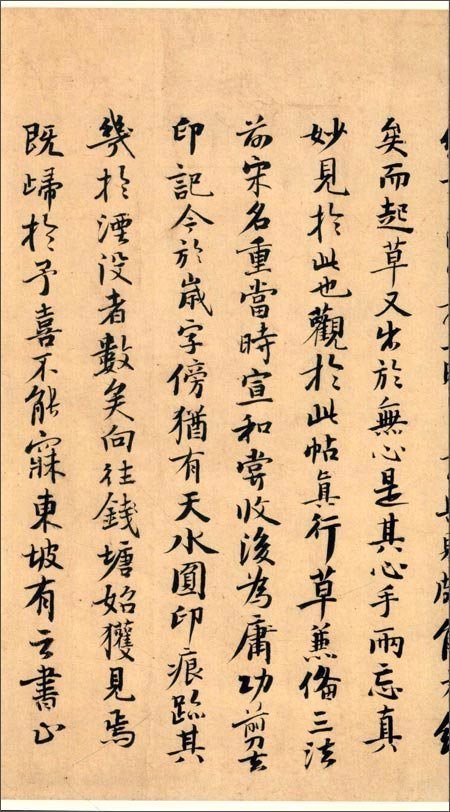 矣而起草又出於無心是其心手兩忘真
妙見於此也觀於此帖真行草兼備三法
前宋名重當時宣和嘗收後為庸功剪去
印記今於歲字傍猶有天水圓印痕跡其
幾於湮没者數矣向往錢塘始獲見焉
既歸於予喜不能寐東坡有云書止